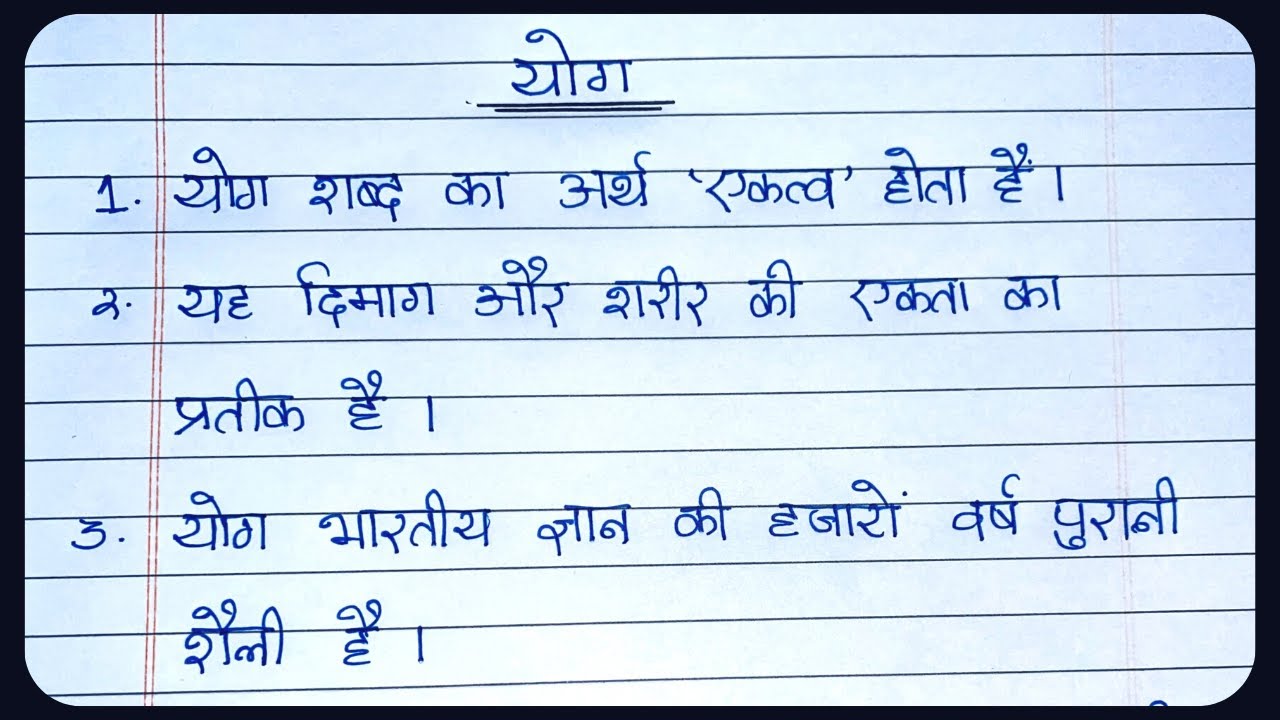 योग
1. योग शब्द का अर्थ 'एकत्व' होता हैं।
२. यह दिमाग और शरीर की एकता का
प्रतीक है।
3. योग भारतीय ज्ञान की हजारों वर्ष पुरानी
शैली है।